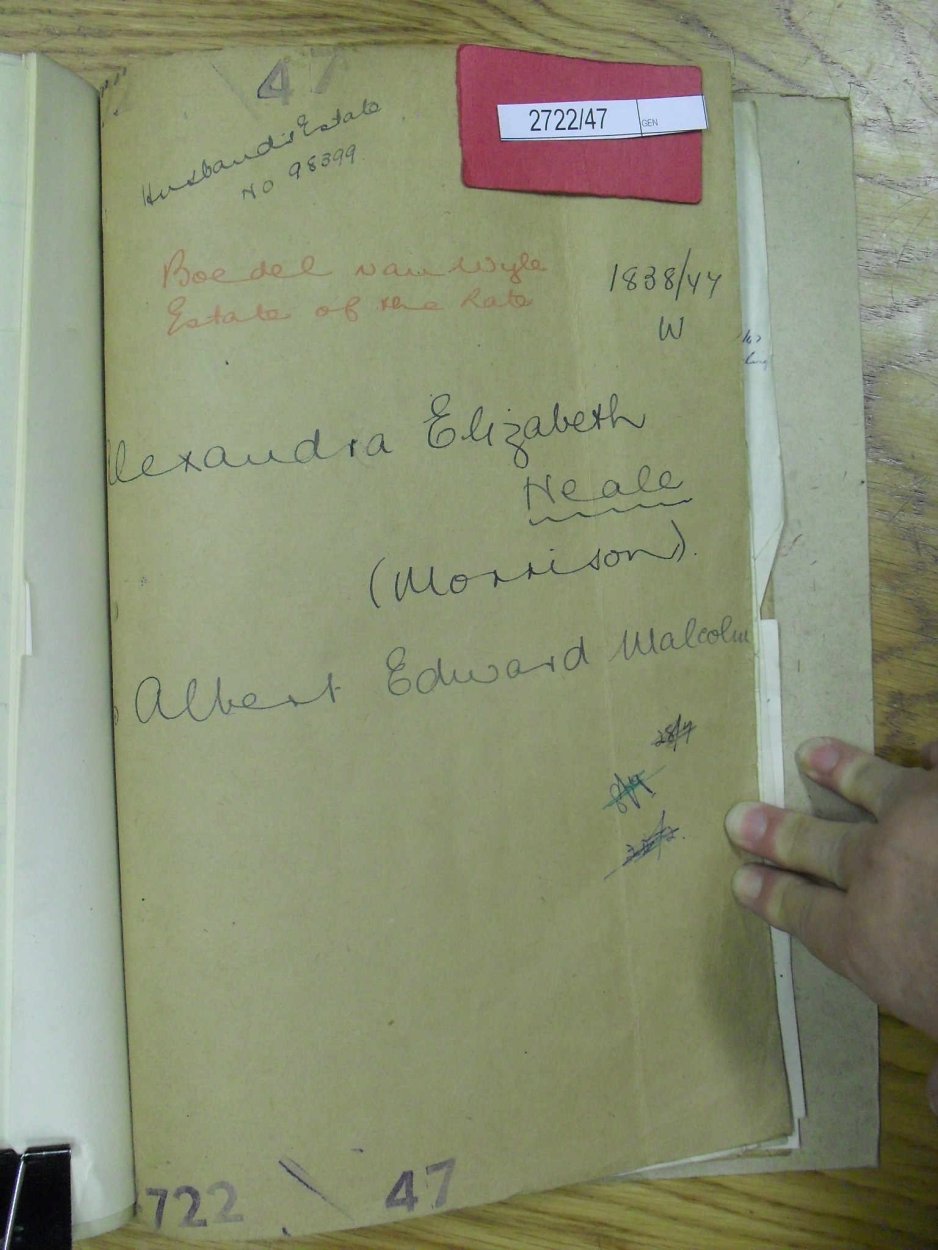 47
2722/47 GEN
Husband's Estate
No 98399
Boedel van Wyle
Estate of the Late
1838/47
W
Alexandra Elizabeth
Neale
(Morrison).
Albert Edward Malcolm
28/7
722 \ 47